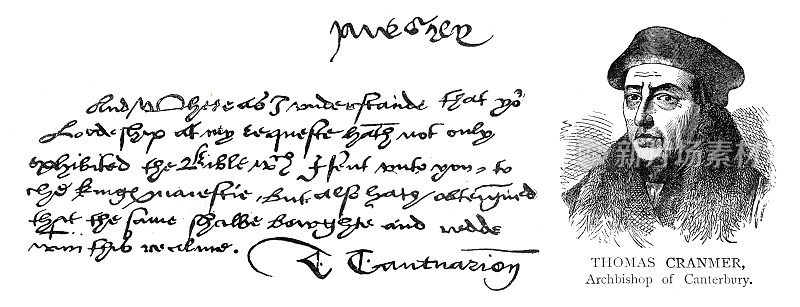 And Where as I understande that yor
Lordeship at my requeste hath not only
exhibited the Bible wch I sent unto you, to
the kings maiestie, but also hath obteyned
that the same shalbe bowghte and redde
wtin this realme.
T Cantuarien
新片场素材
THOMAS CRANMER,
Archbishop of Canterbury.